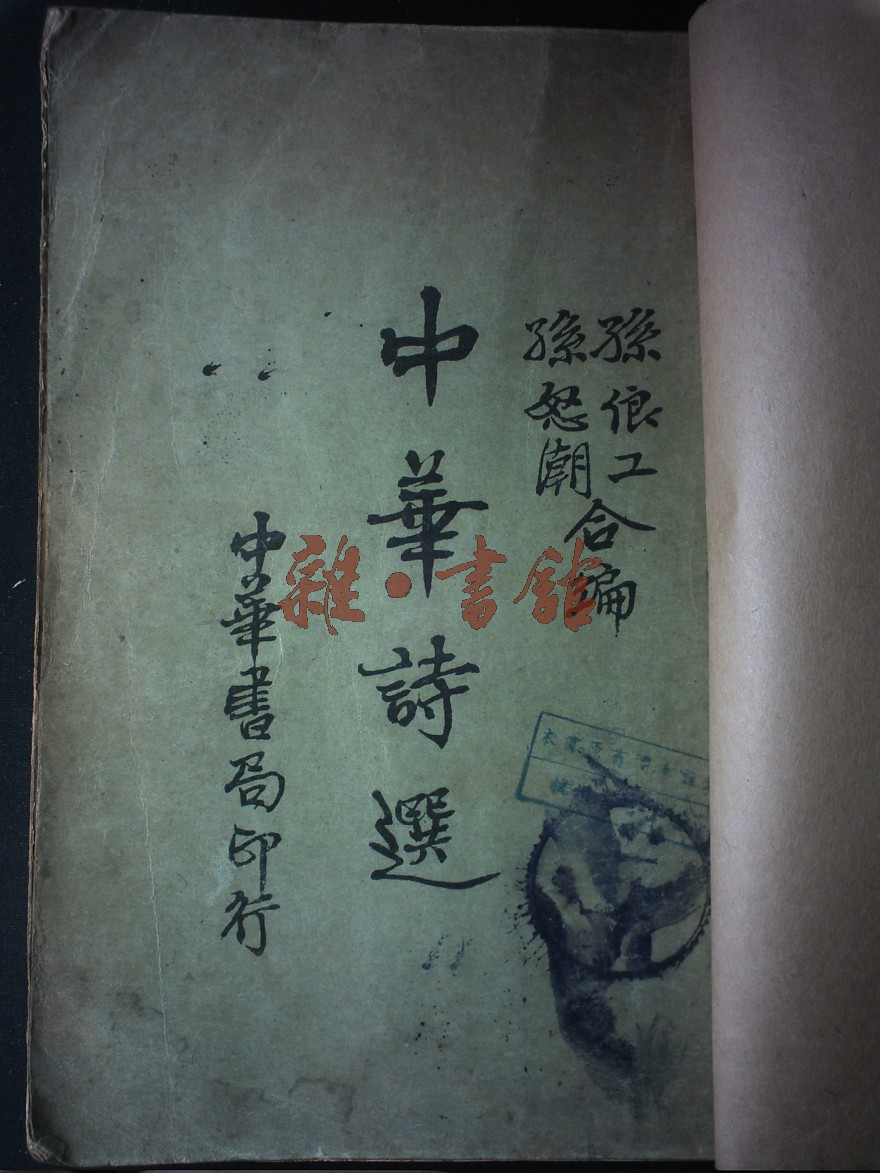 孫俍工
孫怒潮
合編
中華詩選
中華書局印行
雜·書館